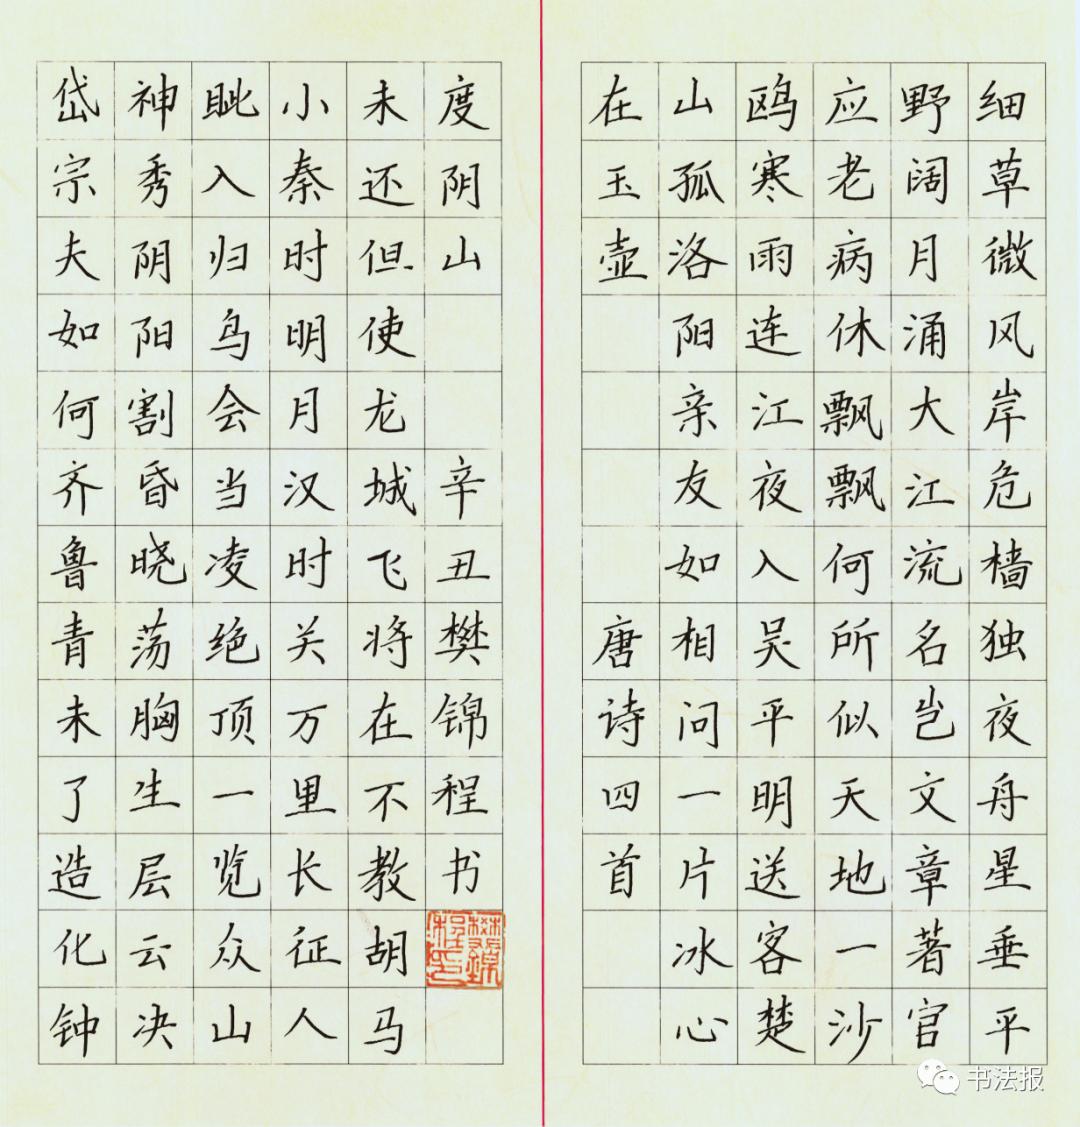 细草微风岸危樯独夜舟星垂平
野阔月涌大江流名岂文章著官
应老病休飘飘何所似天地一沙
鸥寒雨连江夜入吴平明送客楚
山孤洛阳亲友如相问一片冰心
在玉壶 唐诗四首
岱宗夫如何齐鲁青未了造化钟
神秀阴阳割昏晓荡胸生层云决
眦入归鸟会当凌绝顶一览众山
小秦时明月汉时关万里长征人
未还但使龙城飞将在不教胡马
度阴山 辛丑樊锦程书
樊锦程印
书法报